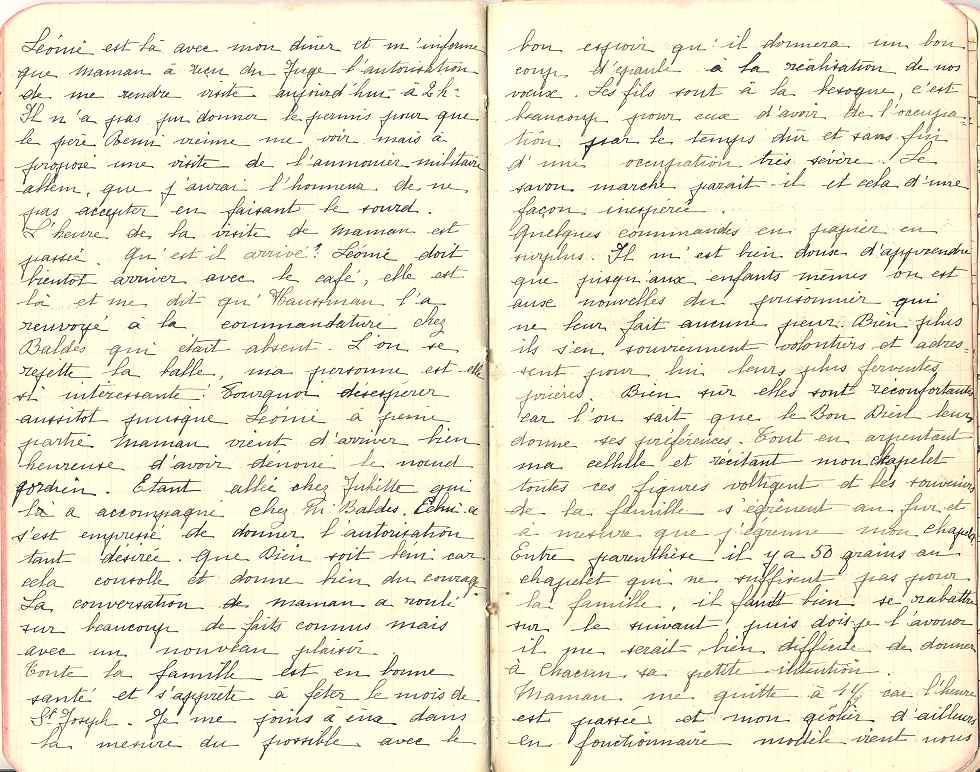 Léonie est là avec mon diner et m'informe
que maman à reçu du Juge l'autorisation
de me rendre visite aujourd'hui à 2h-
Il n'a pas pu donner le permis pour que
le père Benn vienne me voir mais à
proposé une visite de l'aumonier militaire
allem. que j'aurai l'honneur de ne
pas accepter en faisant le sourd.
L'heure de la visite de maman est
passée Qu'est il arrivé? Léonie doit
bientot arriver avec le café, elle est
là et me dit qu'Haussman l'a
renvoyé à la commandature chez
Baldes qui était absent. L'on se
rejette la balle, ma personne est-elle
si intéressante! Pourquoi désespérer
aussitot puisque Léonie à peine
partie maman vient d'arriver bien
heureuse d'avoir dénoué le noeud
gordien. Etant allée chez Juliette qui
la a accompagné chez Mr Baldes. Celui-ci
s'est empressé de donner l'autorisation
tant désirée. Que Dieu soit béni car
cela console et donne bien du courage
La conversation de maman a roulé
sur beaucoup de faits connus mais
avec un nouveau plaisir
Toute la famille est en bonne
santé et s'apprete à féter le mois de
St Joseph. Je me joins à eux dans
la mesure du possible avec le
bon espoir qu'il donnera un bon
coup d'épaule à la réalisation de nos
voeux. Les fils sont à la besogne, c'est
beaucoup pour eux d'avoir de l'occupa-
tion par le temps dur et sans fin
d'une occupation très sévère. Le
savon marche parait-il et cela d'une
façon inespérée.
Quelques commandes en papier en
surplus. Il m'est bien doux d'apprendre
que jusqu'aux enfants mêmes on est
aux nouvelles du prisonnier qui
ne leur fait aucune peur. Bien plus
ils s'en souviennent volontiers et adres-
sent pour lui leurs plus ferventes
prières. Bien sur elles sont reconfortantes
car l'on sait que le Bon Dieu leur
donne ses préférences. Tout en arpentant
ma cellule et récitant mon chapelet
toutes ces figures voltigent et les souvenirs
de la famille s'égrènent au fur et
à mesure que j'égrenne mon chapelet
Entre parenthèse il y a 50 grains au
chapelet qui ne suffisent pas pour
la famille, il faut bien se rabattre
sur le suivant puis dois-je l'avouer
il me serait bien difficile de donner
à chacun sa petite intention.
Maman me quitte à 4h car l'heure
est passée et mon géolier d'ailleurs
en fonctionnaire modèle vient nous